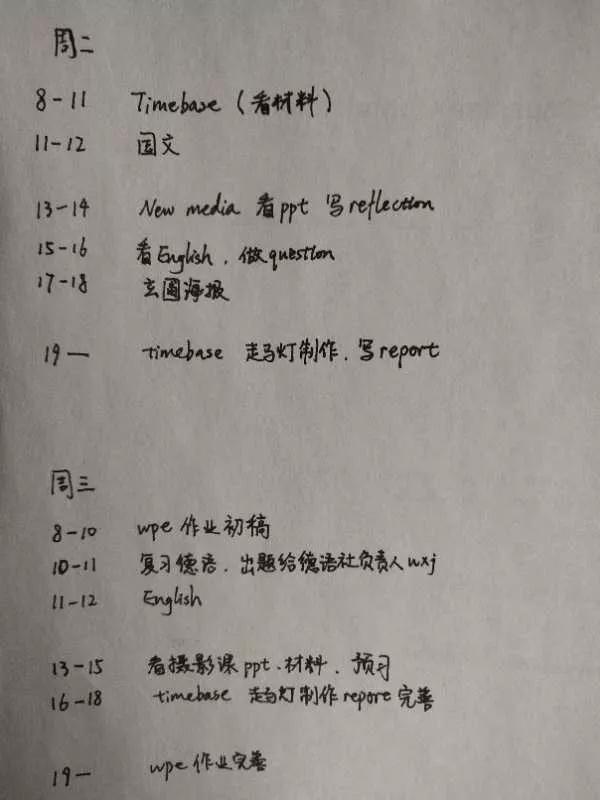 周二
8-11 Timebase (看材料)
11-12 国文
13-14 New media 看ppt 写reflection
15-16 看English, 做question
17-18 海报
19— timebase 走马灯制作, 写report
周三
8-10 wpe 作业初稿
10-11 复习德语, 出题给德语社负责人wxj
11-12 English
13-15 看摄影课ppt、材料、预习
16-18 timebase 走马灯制作report完善
19- wpe 作业完善